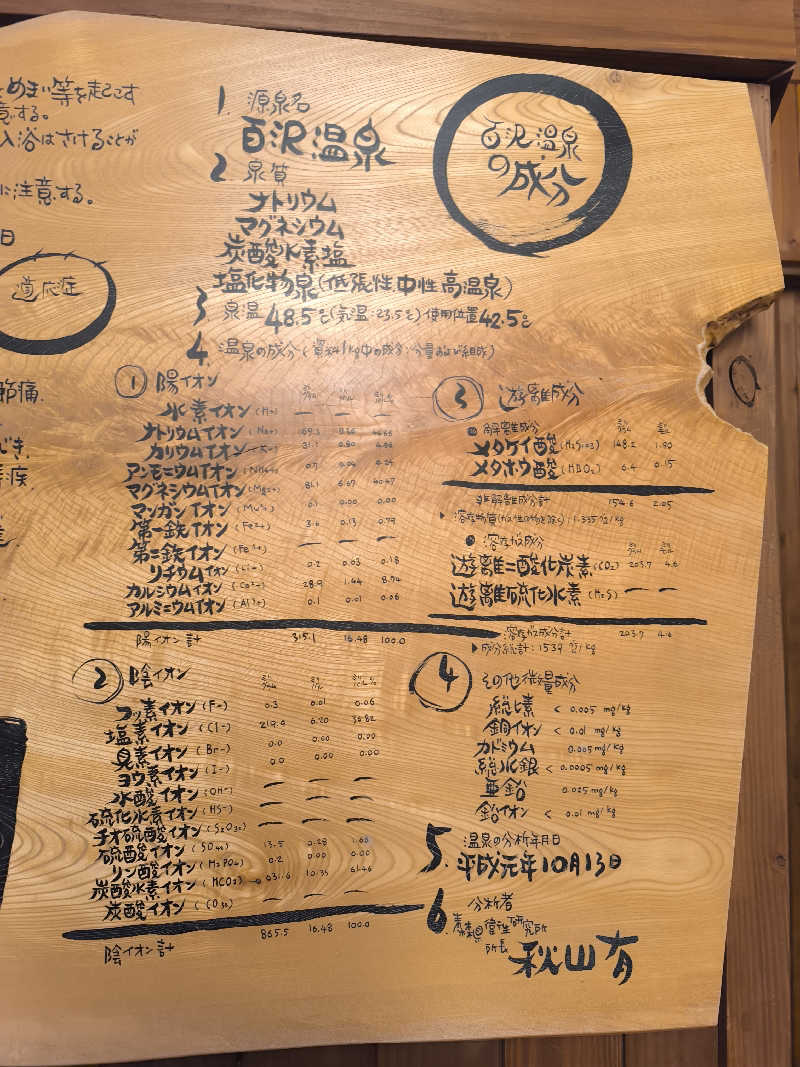 めまい等を起こす
意する。
入浴はさけることが
に注意する。
日
適応症
節痛.
百沢温泉
の成分
1. 源泉名
百沢温泉
2. 泉質
ナトリウム
マグネシウム
炭酸水素塩
塩化物泉(低張性中性高温泉)
3 泉温 48.5℃(気温:23.5℃)使用位置42.5℃
4. 温泉の成分(資料1kg中の成分:分量および組成)
① 陽イオン
水素イオン(H+) — — —
ナトリウムイオン(Na+)
カリウムイオン(K+) 31.1 0.80
アンモニウムイオン(NH4+) 0.7 0.04 0.24
マグネシウムイオン(Mg2+) 81.1 6.67 40.47
マンガンイオン 0.1 0.00 0.00
第一鉄イオン(Fe2+) 3.6 0.13 0.79
第二鉄イオン(Fe3+) — — —
リチウムイオン(Li+) 0.2 0.03 0.18
カルシウムイオン(Ca2+) 28.9 1.44 8.74
アルミニウムイオン(Al3+) 0.1 0.01 0.06
陽イオン計 315.1 16.48 100.0
② 陰イオン
フッ素イオン(F-) 0.3 0.01 0.06
塩素イオン(Cl-) 219.9 6.20
臭素イオン(Br-) 0.0 0.00 0.00
ヨウ素イオン(I-) 0.0 0.00 0.00
水酸イオン(OH-) — — —
硫化水素イオン(HS-) — — —
チオ硫酸イオン — — —
硫酸イオン 13.5 0.28
リン酸イオン 0.2 0.00 0.00
炭酸水素イオン 10.35
炭酸イオン — — —
陰イオン計 865.5 16.48 100.0
③ 遊離成分
非解離成分
メタケイ酸(H2SiO3) 148.2 1.90
メタホウ酸(HBO2) 6.4 0.15
非解離成分計 154.6 2.05
溶存ガス成分
遊離二酸化炭素(CO2) 203.7 4.6
遊離硫化水素(H2S) — —
溶存ガス成分計 203.7 4.6
▶成分総計:1539
④ その他微量成分
総ヒ素 < 0.005 mg/kg
銅イオン < 0.01 mg/kg
カドミウム 0.005 mg/kg
総水銀 < 0.0005 mg/kg
亜鉛 0.025 mg/kg
鉛イオン < 0.01 mg/kg
5. 温泉の分析年月日
平成元年10月13日
6. 分析者
衛生研究所
所長 秋山有